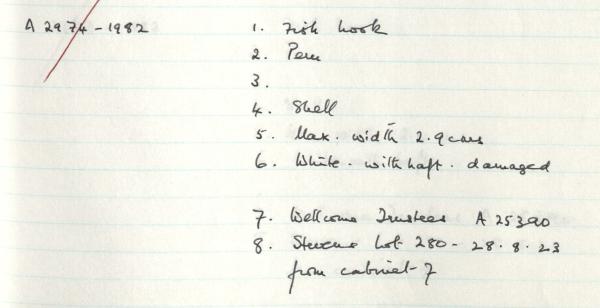 A 2974-1982
1. Fish hook
2. Peru
3.
4. Shell
5. Max. width 2.9cms
6. White. with haft. damaged
7. Wellcome Trustees A 25390
8. Stevens Lot 280 - 28.8.23
from cabinet 7